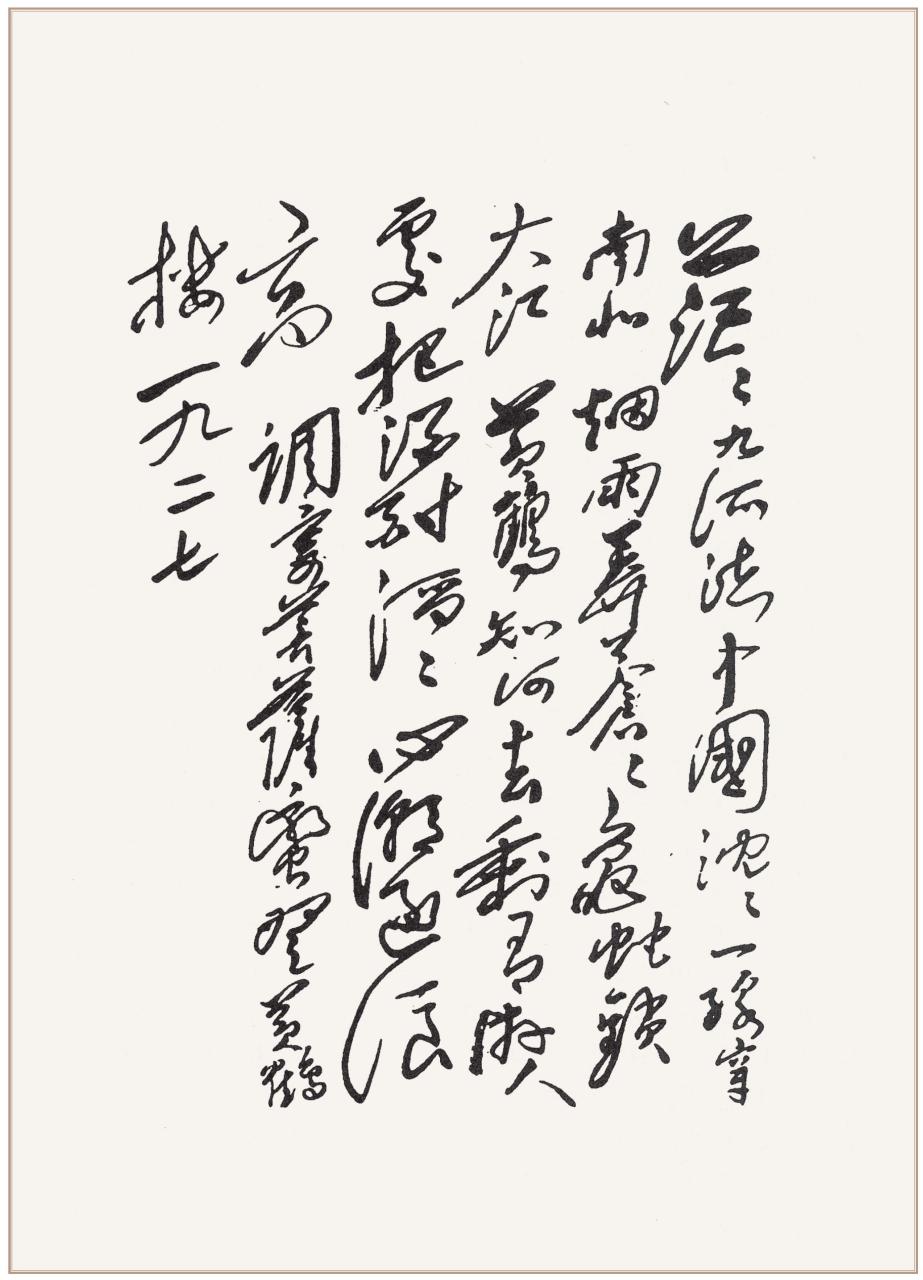 茫茫九派流中國沈〻一線穿
南北烟雨莽蒼〻龜蛇鎖
大江黃鶴知何去剩有遊人
處把酒酹滔〻心潮逐浪
高調寄菩薩蠻登黃鶴
樓一九二七